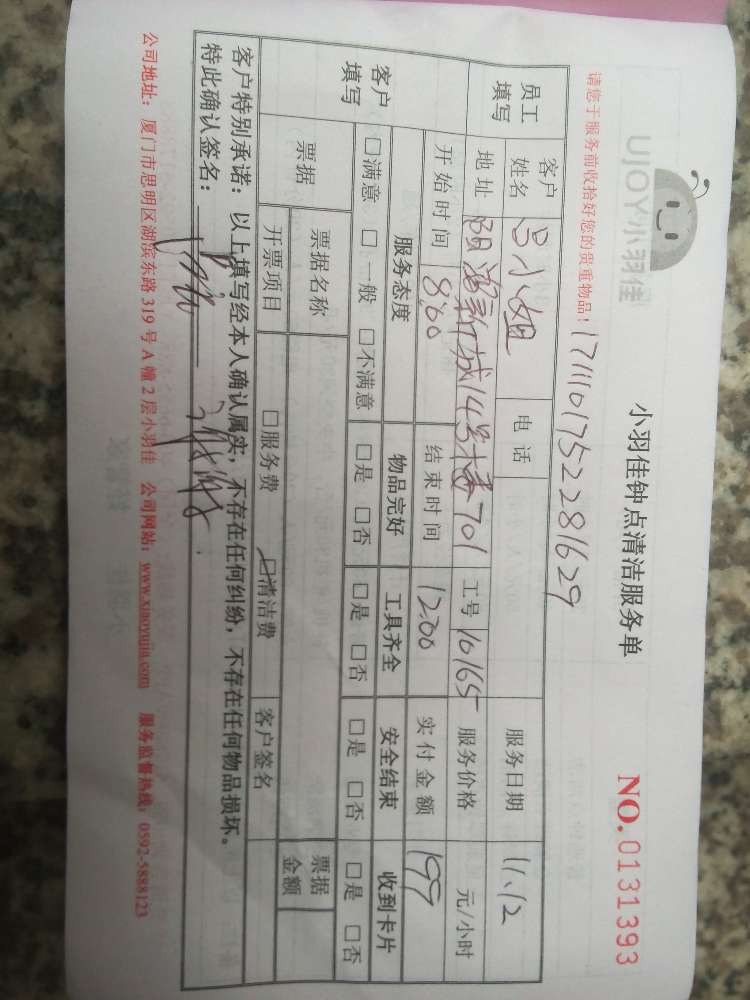 UJOY小羽佳
小羽佳钟点清洁服务单
NO.0131393
请您于服务前收拾好您的贵重物品！
1711101752281629
员工填写 客户姓名 吕小姐 电话 服务日期 11.12
地址 阳鸿新城14号楼701 工号 10165 服务价格 元/小时
开始时间 8:00 结束时间 12:00 实付金额 199
客户填写 服务态度 物品完好 工具齐全 安全结束 收到卡片
□满意 □一般 □不满意 □是 □否 □是 □否 □是 □否 □是 □否
票据 票据名称 票据金额
开票项目 □服务费 □清洁费 客户签名
客户特别承诺：以上填写经本人确认属实，不存在任何纠纷，不存在任何物品损坏。
特此确认签名：
公司地址：厦门市思明区湖滨东路319号A幢2层小羽佳 公司网站：www.xiaoyujia.com 服务监督热线：0592-5888123